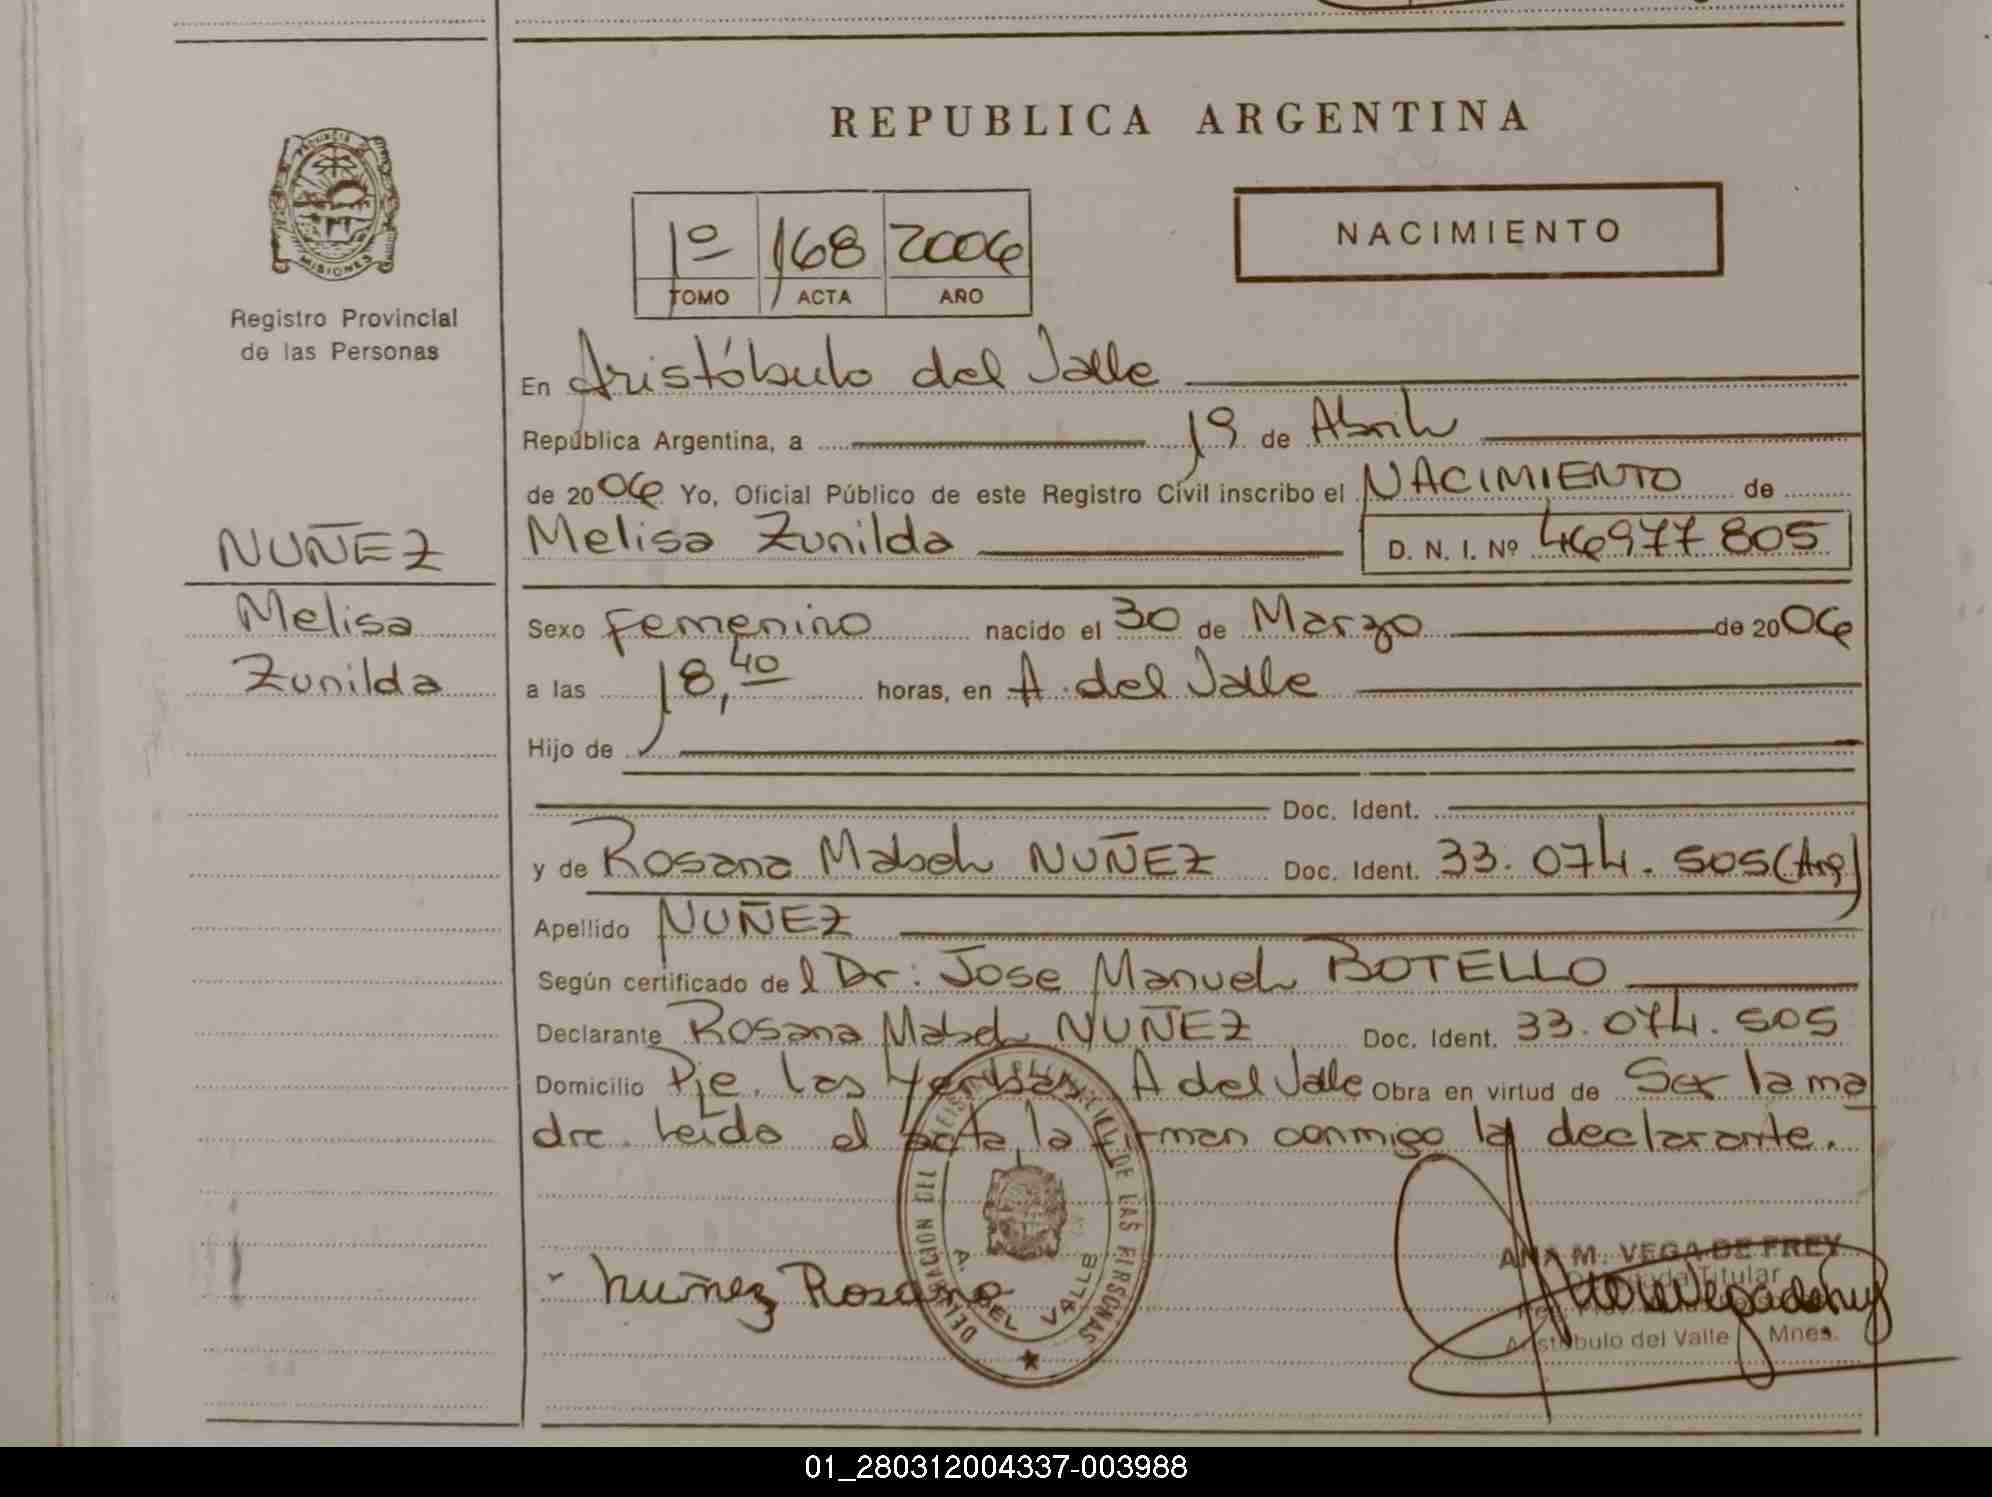 REPUBLICA ARGENTINA
PROVINCIA DE
MISIONES
Registro Provincial
de las Personas
1º 168 2006
TOMO ACTA AÑO
NACIMIENTO
En Aristóbulo del Valle
República Argentina, a 19 de Abril
de 2006 Yo, Oficial Público de este Registro Civil inscribo el NACIMIENTO de
NUÑEZ
Melisa Zunilda
Melisa Zunilda D. N. I. Nº 46977805
Sexo femenino nacido el 30 de Marzo de 2006
a las 18,40 horas, en A. del Valle
Hijo de
Doc. Ident.
y de Rosana Mabel NUÑEZ Doc. Ident. 33.074.505 (Arg)
Apellido NUÑEZ
Según certificado del Dr: Jose Manuel BOTELLO
Declarante Rosana Mabel NUÑEZ Doc. Ident. 33.074.505
Domicilio Pje. Las Yerbas A del Valle Obra en virtud de Ser la ma
dre. Leída el acta la firman conmigo la declarante.
DELEGACION DEL REGISTRO PROVINCIAL DE LAS PERSONAS
A. DEL VALLE
Nuñez Rosana
ANA M. VEGA DE FREY
Delegada Titular
Aristóbulo del Valle Mnes.
01_280312004337-003988